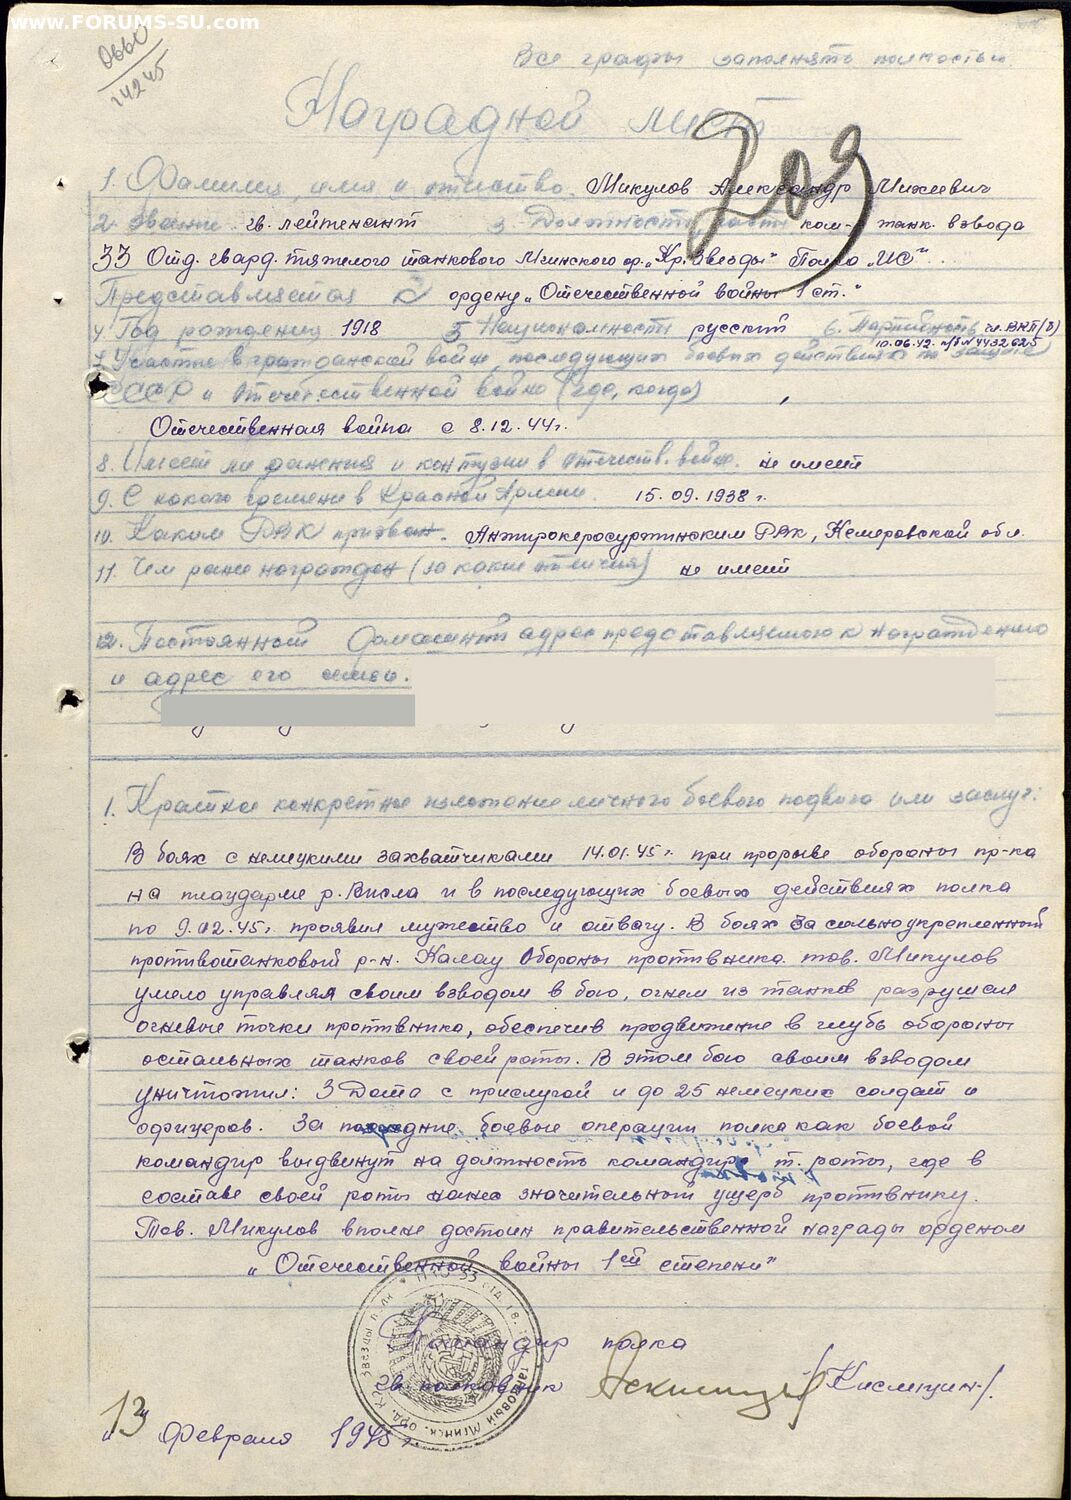 www.FORUMS-SU.com
0660
24245
Все графы заполнять полностью.
209
Наградной лист
1. Фамилия, имя и отчество Микулов Александр Михеевич
2. Звание гв. лейтенант 3. Должность, часть ком-р танк. взвода
33 Отд. гвард. тяжелого танкового Мгинского ор. „Кр. Звезды" Полка „ИС".
Представляется к ордену „Отечественной войны 1 ст."
4 Год рождения 1918 5 Национальность русский 6. Партийность чл. ВКП(б)
10.06.42. п/б N 4432625
7. Участие в гражданской войне, последующих боевых действиях по защите
СССР и отечественной войне (где, когда)
Отечественная война с 8.12.44г.
8. Имеет ли ранения и контузии в отечеств. войне. не имеет
9. С какого времени в Красной Армии. 15.09.1938 г.
10. Каким РВК призван. РВК, Кемеровской обл.
11. Чем ранее награжден (за какие отличия) не имеет
12. Постоянный домашний адрес представляемого к награждению
и адрес его семьи.
1. Краткое конкретное изложение личного боевого подвига или заслуг:
В боях с немецкими захватчиками 14.01.45г. при прорыве обороны пр-ка
на плацдарме р. Висла и в последующих боевых действиях полка
по 9.02.45г. проявил мужество и отвагу. В боях за сильноукрепленный
противотанковый р-н. Калау Обороны противника тов. Микулов
умело управляя своим взводом в бою, огнем из танков разрушал
огневые точки противника, обеспечив продвижение в глубь обороны
остальных танков своей роты. В этом бою своим взводом
уничтожил: 3 Дота с прислугой и до 25 немецких солдат и
офицеров. За боевые операции полка как боевой
командир выдвинут на должность командира т. роты, где в
составе своей роты нанес значительный ущерб противнику.
Тов. Микулов вполне достоин правительственной награды орденом
„Отечественной войны 1ой степени"
Командир полка
гв полковник /Кислицин/.
13 Февраля 1945 г.